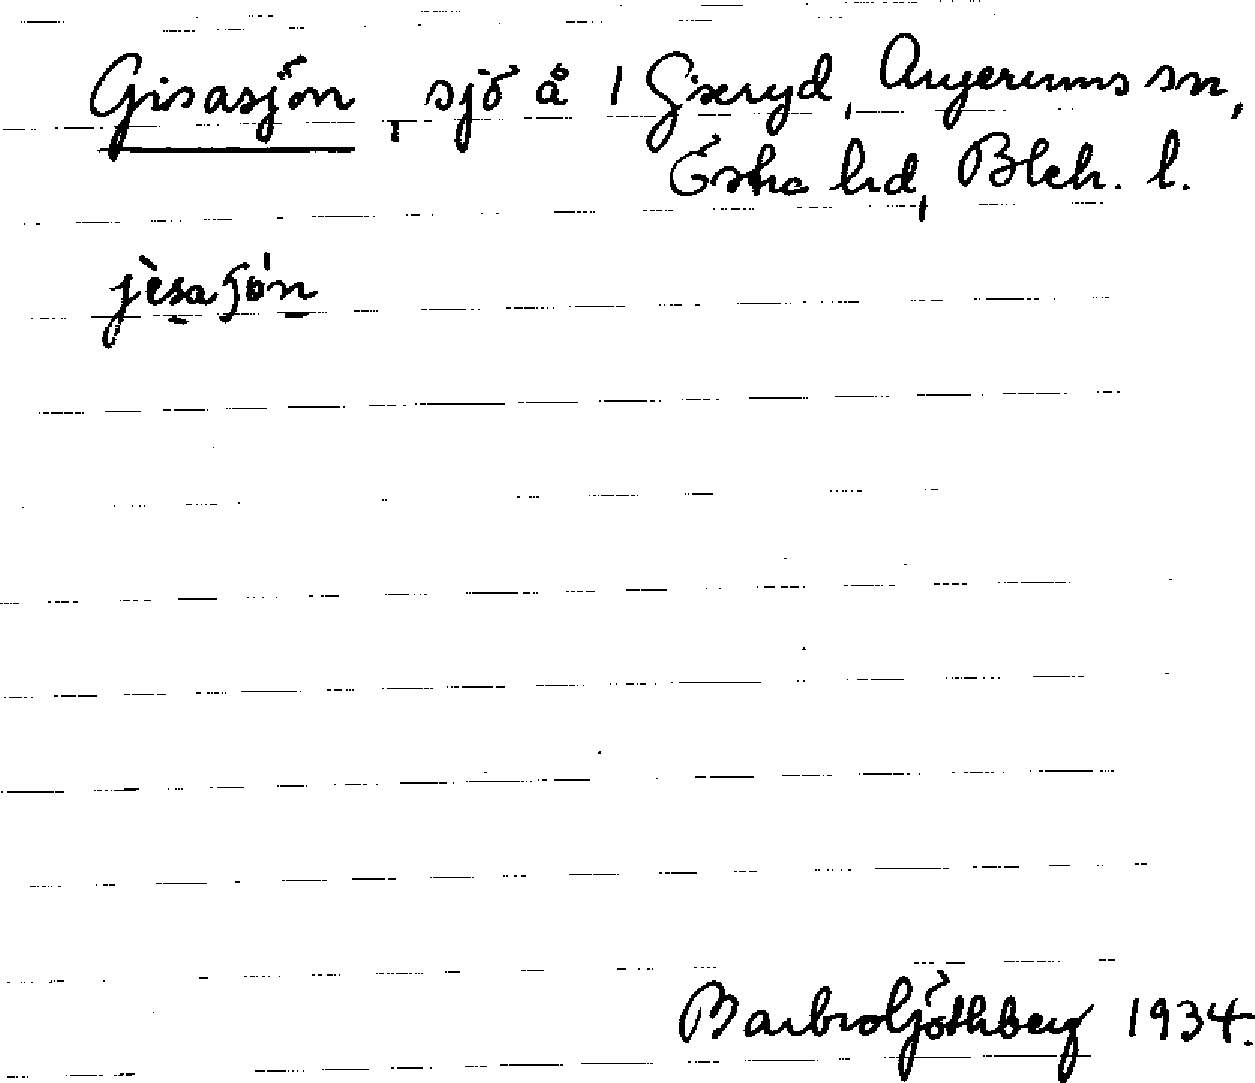 Gisasjön, sjö å 1 Gixeryd, Augerums sn,
Östra hd, Blek. l.
jèsaʃö́n
Barbro Göthberg 1934.